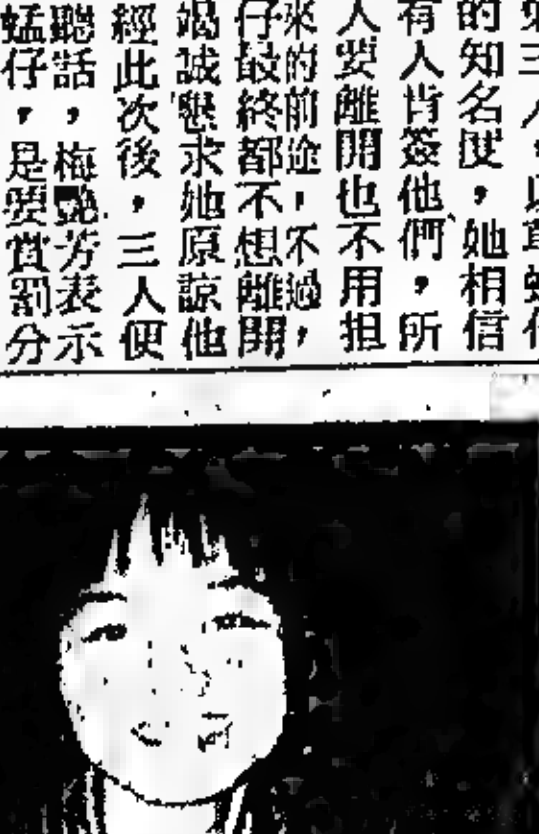 三人，以草蜢仔
的知名度，她相信
有人肯簽他們，所
人要離開也不用担
來的前途，不過，
仔最終都不想離開
竭誠懇求她原諒他
經此次後，三人便
聽話，梅艷芳表示
蜢仔，是要賞罰分